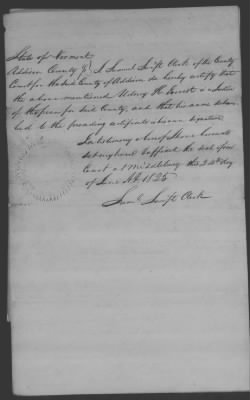 State of Vermont
Addison County } I Samuel Swift Clerk of the County
Court for the said County of Addison do hereby certify that
the above mentioned Udney H. Everest is a Justice
of the peace for said County, and that his name
to the preceding certificate is his own signature
In testimony whereof I have hereunto
set my hand & affixed the seal of said
Court at Middlebury this 24th day
of June A.D. 1825
Saml. Swift Clerk